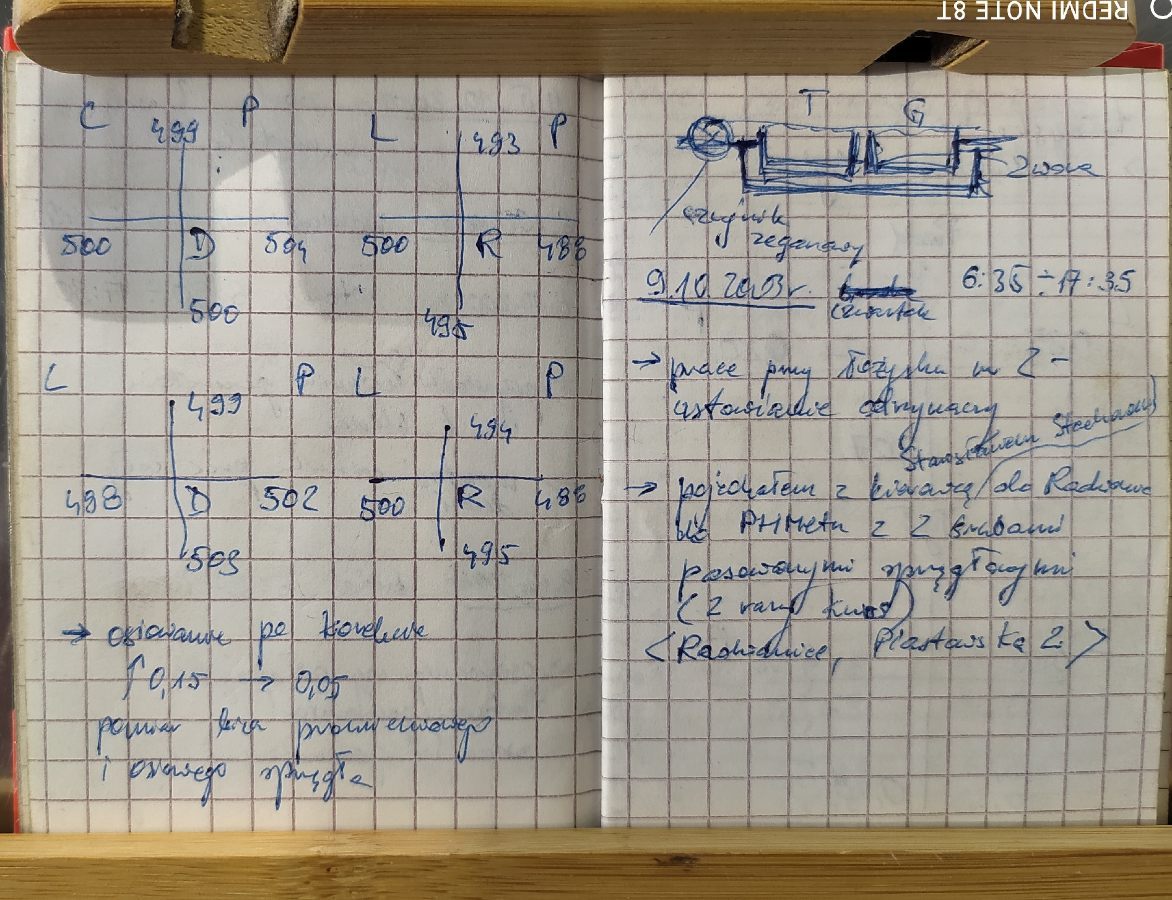 REDMI NOTE 8T
L P
499
500 D 504
500
L P
493
500 R 488
495
L P
499
498 D 502
503
L P
494
500 R 488
495
→ osiowanie po korekcie
↑ 0,15 → 0,05
pomiar bicia promieniowego
i osiowego sprzęgła
T G
zwora
czujnik
zegarowy
9.10.2003r. czwartek 6:35 ÷ 17:35
→ prace przy łożysku nr 2 -
ustawianie odrzynaczy
→ pojechałem z kierowcą / do Radwanic
Stanisławem
do PHMetu z 2 śrubami
pasowanymi sprzęgłacymi
(2 razy kurs)
<Radwanice, Piastowska 2>